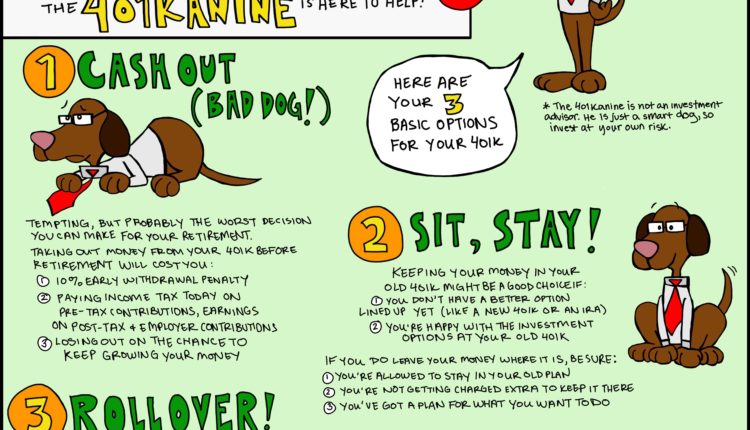 THE 401KANINE IS HERE TO HELP!
1 CASH OUT
(BAD DOG!)
HERE ARE
YOUR 3
BASIC OPTIONS
FOR YOUR 401K
* The 401Kanine is not an investment
advisor. He is just a smart dog, so
invest at your own risk.
TEMPTING, BUT PROBABLY THE WORST DECISION
YOU CAN MAKE FOR YOUR RETIREMENT.
TAKING OUT MONEY FROM YOUR 401K BEFORE
RETIREMENT WILL COST YOU:
1 10% EARLY WITHDRAWAL PENALTY
2 PAYING INCOME TAX TODAY ON
PRE-TAX CONTRIBUTIONS, EARNINGS
ON POST-TAX & EMPLOYER CONTRIBUTIONS
3 LOSING OUT ON THE CHANCE TO
KEEP GROWING YOUR MONEY
2 SIT, STAY!
KEEPING YOUR MONEY IN YOUR
OLD 401K MIGHT BE A GOOD CHOICE IF:
1 YOU DON'T HAVE A BETTER OPTION
LINED UP YET (LIKE A NEW 401K OR AN IRA)
2 YOU'RE HAPPY WITH THE INVESTMENT
OPTIONS AT YOUR OLD 401K
IF YOU DO LEAVE YOUR MONEY WHERE IT IS, BE SURE:
1 YOU'RE ALLOWED TO STAY IN YOUR OLD PLAN
2 YOU'RE NOT GETTING CHARGED EXTRA TO KEEP IT THERE
3 YOU'VE GOT A PLAN FOR WHAT YOU WANT TO DO
3 ROLLOVER!